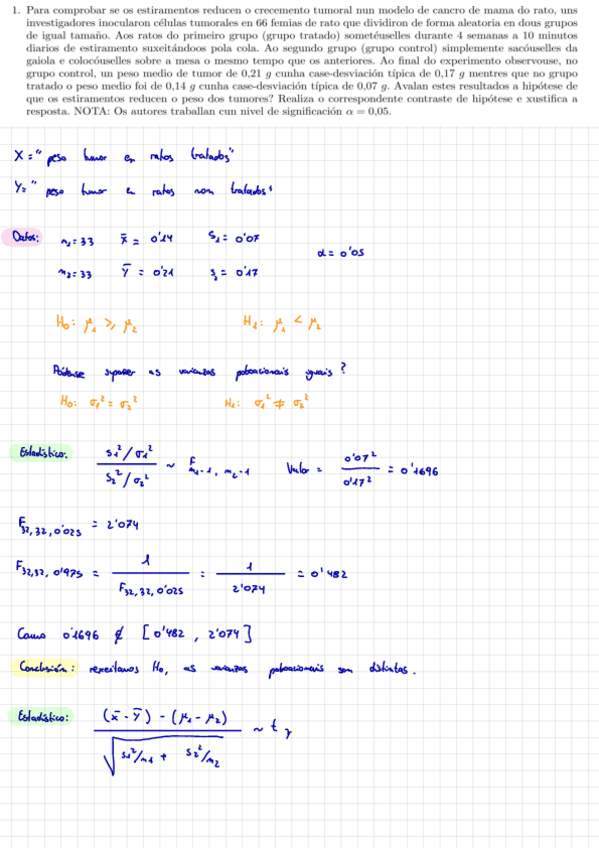 1. Para comprobar se os estiramentos reducen o crecemento tumoral nun modelo de cancro de mama do rato, uns
investigadores inocularon células tumorales en 66 femias de rato que dividiron de forma aleatoria en dous grupos
de igual tamaño. Aos ratos do primeiro grupo (grupo tratado) sometéuselles durante 4 semanas a 10 minutos
diarios de estiramento suxeitándoos pola cola. Ao segundo grupo (grupo control) simplemente sacóuselles da
gaiola e colocóuselles sobre a mesa o mesmo tempo que os anteriores. Ao final do experimento observouse, no
grupo control, un peso medio de tumor de 0,21 g cunha case-desviación típica de 0,17 g mentres que no grupo
tratado o peso medio foi de 0,14 g cunha case-desviación típica de 0,07 g. Avalan estes resultados a hipótese de
que os estiramentos reducen o peso dos tumores? Realiza o correspondente contraste de hipótese e xustifica a
resposta. NOTA: Os autores traballan cun nivel de significación α = 0,05.
X = "peso tumor en ratos tratados"
Y = "peso tumor en ratos non tratados"
Datos: n₁ = 33 x̄ = 0'14 s₁ = 0'07
α = 0'05
n₂ = 33 ȳ = 0'21 s₂ = 0'17
H₀: μ₁ ≥ μ₂ H₁: μ₁ < μ₂
Pódense supoñer as varianzas poboacionais iguais?
H₀: σ₁² = σ₂² H₁: σ₁² ≠ σ₂²
Estadístico: (s₁²/σ₁²) / (s₂²/σ₂²) ~ F n₁-1, n₂-1 Valor = 0'07² / 0'17² = 0'1696
F 32,32,0'025 = 2'074
F 32,32,0'975 = 1 / F 32,32,0'025 = 1 / 2'074 = 0'482
Como 0'1696 ∉ [0'482, 2'074]
Conclusión: rexeitamos H₀, as varianzas poboacionais son distintas.
Estadístico: (x̄ - ȳ) - (μ₁ - μ₂) / √(s₁²/n₁ + s₂²/n₂) ~ t γ